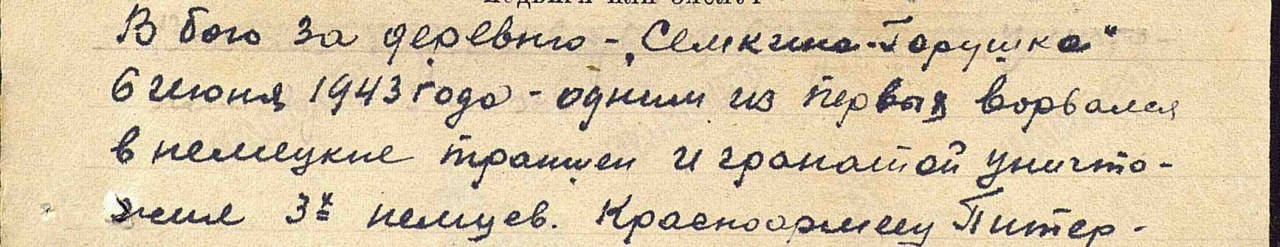 подвига или заслуг
В бою за деревню - „Семкина-Горушка"
6 июня 1943 года - одним из первых ворвался
в немецкие траншеи и гранатой уничто-
жил 3х немцев. Красноармеец Питер-